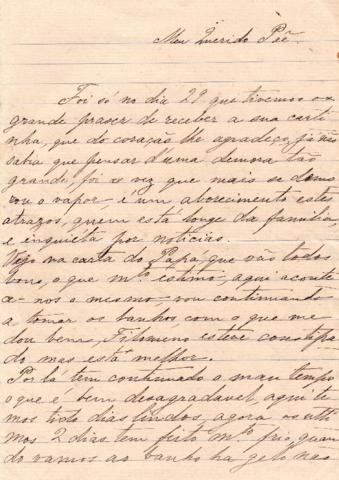 Meu Querido Pae
Foi só no dia 29 que tivemos o
grande praser de receber a sua carti
nha, que do coração lhe agradeço, já não
sabia que pensar d'uma demora tão
grande, foi a vez que mais se demo
rou o vapor - é um aborecimento estes
atrazos, quem está longe da familia,
e inquiéta por noticias.
Vejo na carta do Papá, que vão todos
bons, o que m.to estimo; aqui aconte
ce-nos o mesmo - vou continuando
a tomar os banhos com o que me
dou bem, Filomeno esteve constipa
do mas está melhor.
Por lá tem continuado o mau tempo
o que é bem desagradavel, aqui te
mos tido dias lindos, agora os ulti
mos 2 dias tem feito m.to frio, quan
do vamos ao banho ha gelo nas